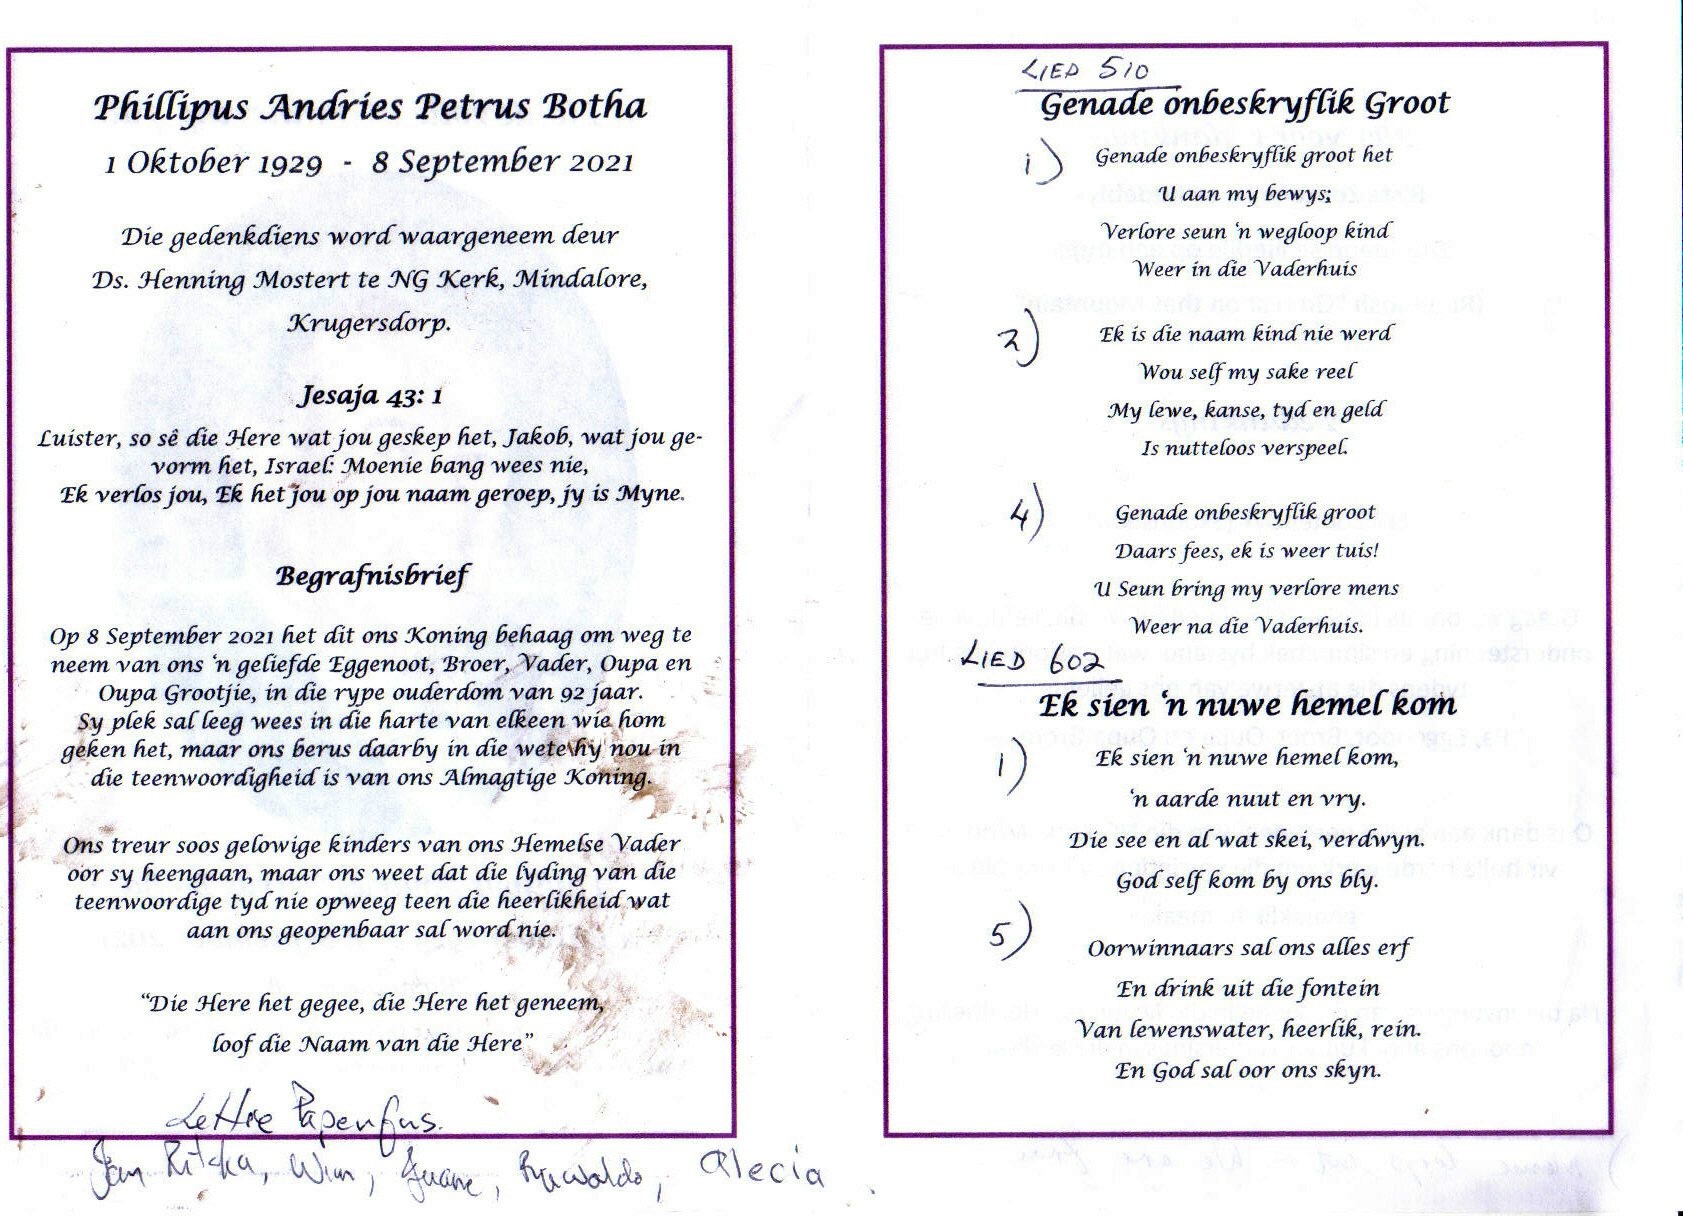 Phillipus Andries Petrus Botha
1 Oktober 1929 - 8 September 2021
Die gedenkdiens word waargeneem deur
Ds. Henning Mostert te NG Kerk, Mindalore,
Krugersdorp.
Jesaja 43: 1
Luister, so sê die Here wat jou geskep het, Jakob, wat jou ge-
vorm het, Israel: Moenie bang wees nie,
Ek verlos jou, Ek het jou op jou naam geroep, jy is Myne.
Begrafnisbrief
Op 8 September 2021 het dit ons Koning behaag om weg te
neem van ons ‘n geliefde Eggenoot, Broer, Vader, Oupa en
Oupa Grootjie, in die rype ouderdom van 92 jaar.
Sy plek sal leeg wees in die harte van elkeen wie hom
geken het, maar ons berus daarby in die wete hy nou in
die teenwoordigheid is van ons Almagtige Koning.
Ons treur soos gelowige kinders van ons Hemelse Vader
oor sy heengaan, maar ons weet dat die lyding van die
teenwoordige tyd nie opweeg teen die heerlikheid wat
aan ons geopenbaar sal word nie.
“Die Here het gegee, die Here het geneem,
loof die Naam van die Here”
Lettie Papenfus.
Jan Ritska, Wim, Juane, Ruwaldo, Alecia
LIED 510
Genade onbeskryflik Groot
1) Genade onbeskryflik groot het
U aan my bewys;
Verlore seun ‘n wegloop kind
Weer in die Vaderhuis
2) Ek is die naam kind nie werd
Wou self my sake reel
My lewe, kanse, tyd en geld
Is nutteloos verspeel.
4) Genade onbeskryflik groot
Daars fees, ek is weer tuis!
U Seun bring my verlore mens
Weer na die Vaderhuis.
LIED 602
Ek sien ‘n nuwe hemel kom
1) Ek sien ‘n nuwe hemel kom,
‘n aarde nuut en vry.
Die see en al wat skei, verdwyn.
God self kom by ons bly.
5) Oorwinnaars sal ons alles erf
En drink uit die fontein
Van lewenswater, heerlik, rein.
En God sal oor ons skyn.